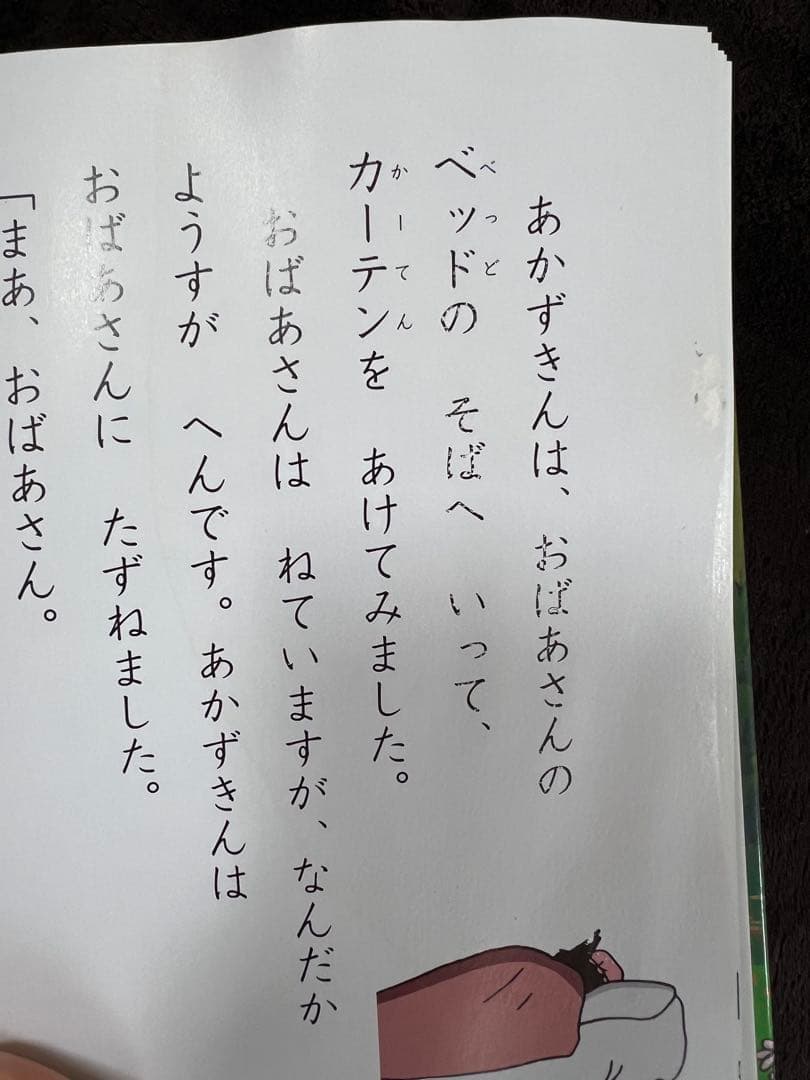 あかずきんは、おばあさんの
ベッドの そばへ いって、
べっど
カーテンを あけてみました。
かーてん
おばあさんは ねていますが、なんだか
ようすが へんです。あかずきんは
おばあさんに たずねました。
「まあ、おばあさん。